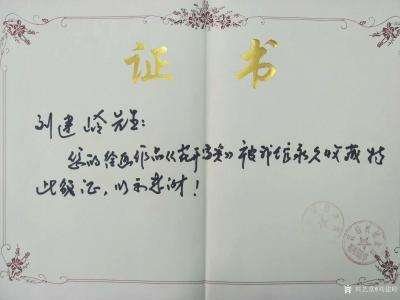 证书
刘建岭先生：
您的绘画作品《花开富贵》被我馆永久收藏 特
此颁证，以示感谢！